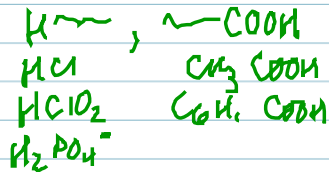 H~ , ~COOH
HCl CH3 COOH
HClO2 C6H5 COOH
H2PO4-